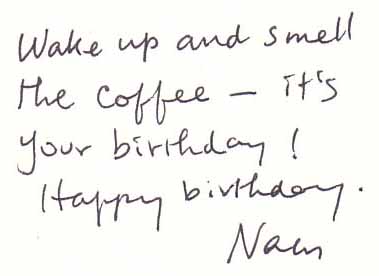 Wake up and smell
the coffee – it's
your birthday!
Happy birthday.